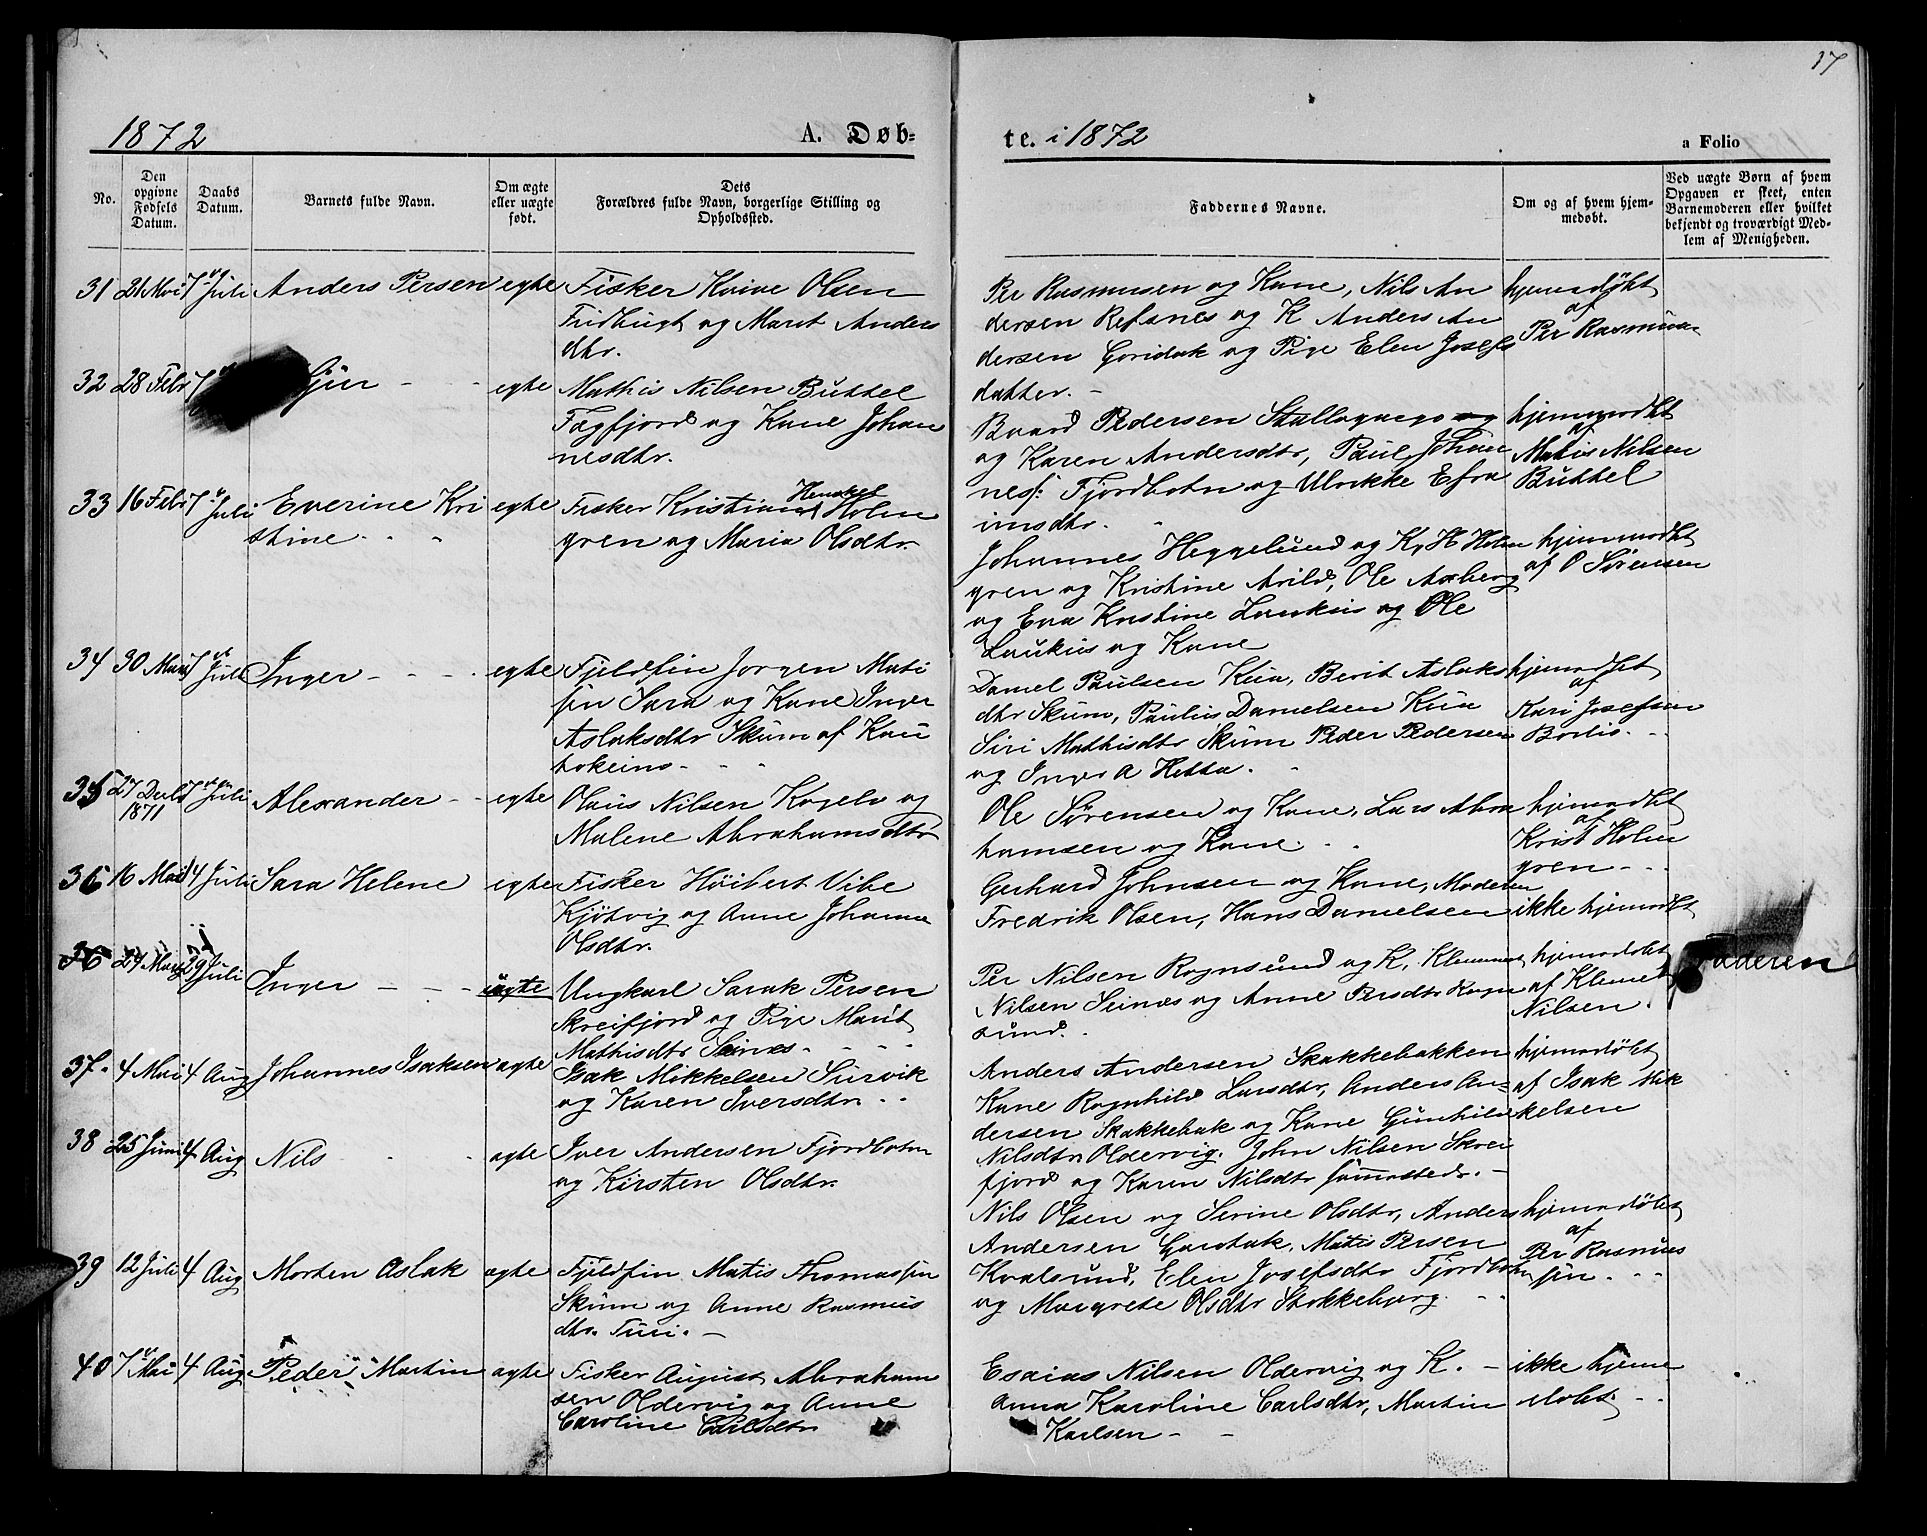 37
1872
A. Døb-
te. i 1872
a Folio
No.
Den opgivne Fødsels Datum.
Daabs Datum.
Barnets fulde Navn.
Om ægte eller uægte født.
Dets Forældres fulde Navn, borgerlige Stilling og Opholdssted.
Faddernes Navne.
Om og af hvem hjem-
medøbt.
Ved uægte Børn af hvem
Opgaven er skeet, enten
Barnemoderen eller hvilket
bekjendt og troværdigt Med-
lem af Menigheden.
31 21 Mai 7 Juli Anders Persen egte Fisker Kvive Olsen
Fridhugt og Marit Anders
dtr.
Per Rasmussen og Kone, Nils An
dersen Refsnes og K Anders An
dersen og Pige Elen Josefs
datter. -
hjemmedøbt
af
Per Rasmus
32 28 Febr 7 egte Mathis Nilsen Buttel
Fægfjord og Kone Johan
nesdtr.
Baard Pedersen Stalloguergo
og Karen Andersdtr, Paul Johan
nes: Fjordbotn og Ulrikke Efra
imsdtr.
hjemmedbt
af
Matis Nilsen
Buttel
33 16 Febr 7 Juli Everine Kri
stine
egte Fisker Kristian Henrikel Holm
gren og Maria Olsdtr.
Johannes Heggelund og K, H Holm
gren og Kristine Arild, Ole Aasberg
og Eva Kristine Laukuis og Ole
Laukuis og Kone
hjemmedbt
af O Sørensen
34 30 7 Juli Inger - - - egte Fjeldfin Jorgen Mati
sen Sara og Kone Inger
Aslaksdtr Skum af Kau
tokeino - -
Daniel Paulsen Kua, Berit Aslaks
dtr Skum, Paulus Danielsen Kua
Siri Mathisdtr Skum Peder Pedersen
og Inger A Hetta.
hjemmedbt
af
Kari Josefsen
35 27 Debr 1871 7 Juli Alexander - - egte Olaus Nilsen Kogelv og
Malene Abrahamsdtr
Ole Sørensen og Kone, Lars Abra
hamsen og Kone.
hjemmedbt
af
Krist Holm
gren - -
36 16 Mai 14 Juli Sara Helene egte Fisker Høibert Vibe
Kjøtvig og Anne Johanna
Olsdtr.
Gerhard Johnsen og Kone, Moderen
Fredrik Olsen, Hans Danielsen
ikke hjemmedbt
36 27 29 Juli Inger - - - uægte Ungkarl Sarak Persen
Skreifjord og Pige Marit
Mathisdtr Seines - - -
Per Nilsen Rognsund og K, Klemmet
Nilsen Seines og Anne Persdtr Rogn
sund.
hjemmedøbt
af Klemet
Nilsen.
Faderen
37. 4 Mai 4 Aug Johannes Isaksen ægte Isak Mikkelsen Survik
og Karen Iversdtr - -
Anders Andersen Skakkebakken
Kone Ragnhild Larsdtr, Anders An-
dersen Skakkebak og Kone Gunhild
Nilsdtr Oldervig. John Nilsen Skrei
fjord og Karen Nilsdtr sammesteds. -
hjemmedøbt
af Isak Mik
kelsen
38 25 Juni 4 Aug Nils - - - ægte Iver Andersen Fjordbotn
og Kirsten Olsdtr.
Nils Olsen og Serine Olsdtr, Anders
Andersen Matis Persen
Kvalsund, Elen Josefsdtr Fjordbotn
og Margrete Olsdtr Stokkebjerg.
hjemmedøbt
af
Per Rasmus
sen. - -
39 12 Juli 4 Aug Morten Aslak ægte Fjeldfin Matis Thomassen
Skum og Anne Rasmus
dtr. Turi. -
40 7 Mai 4 Aug Peder Martin ægte Fisker August Abraham
sen Oldervig og Anne
Caroline Carlsdtr
Esaias Nilsen Oldervig og K. -
Anna Karoline Carlsdtr, Martin
Karlsen - -
ikke hjemme
døbt - -